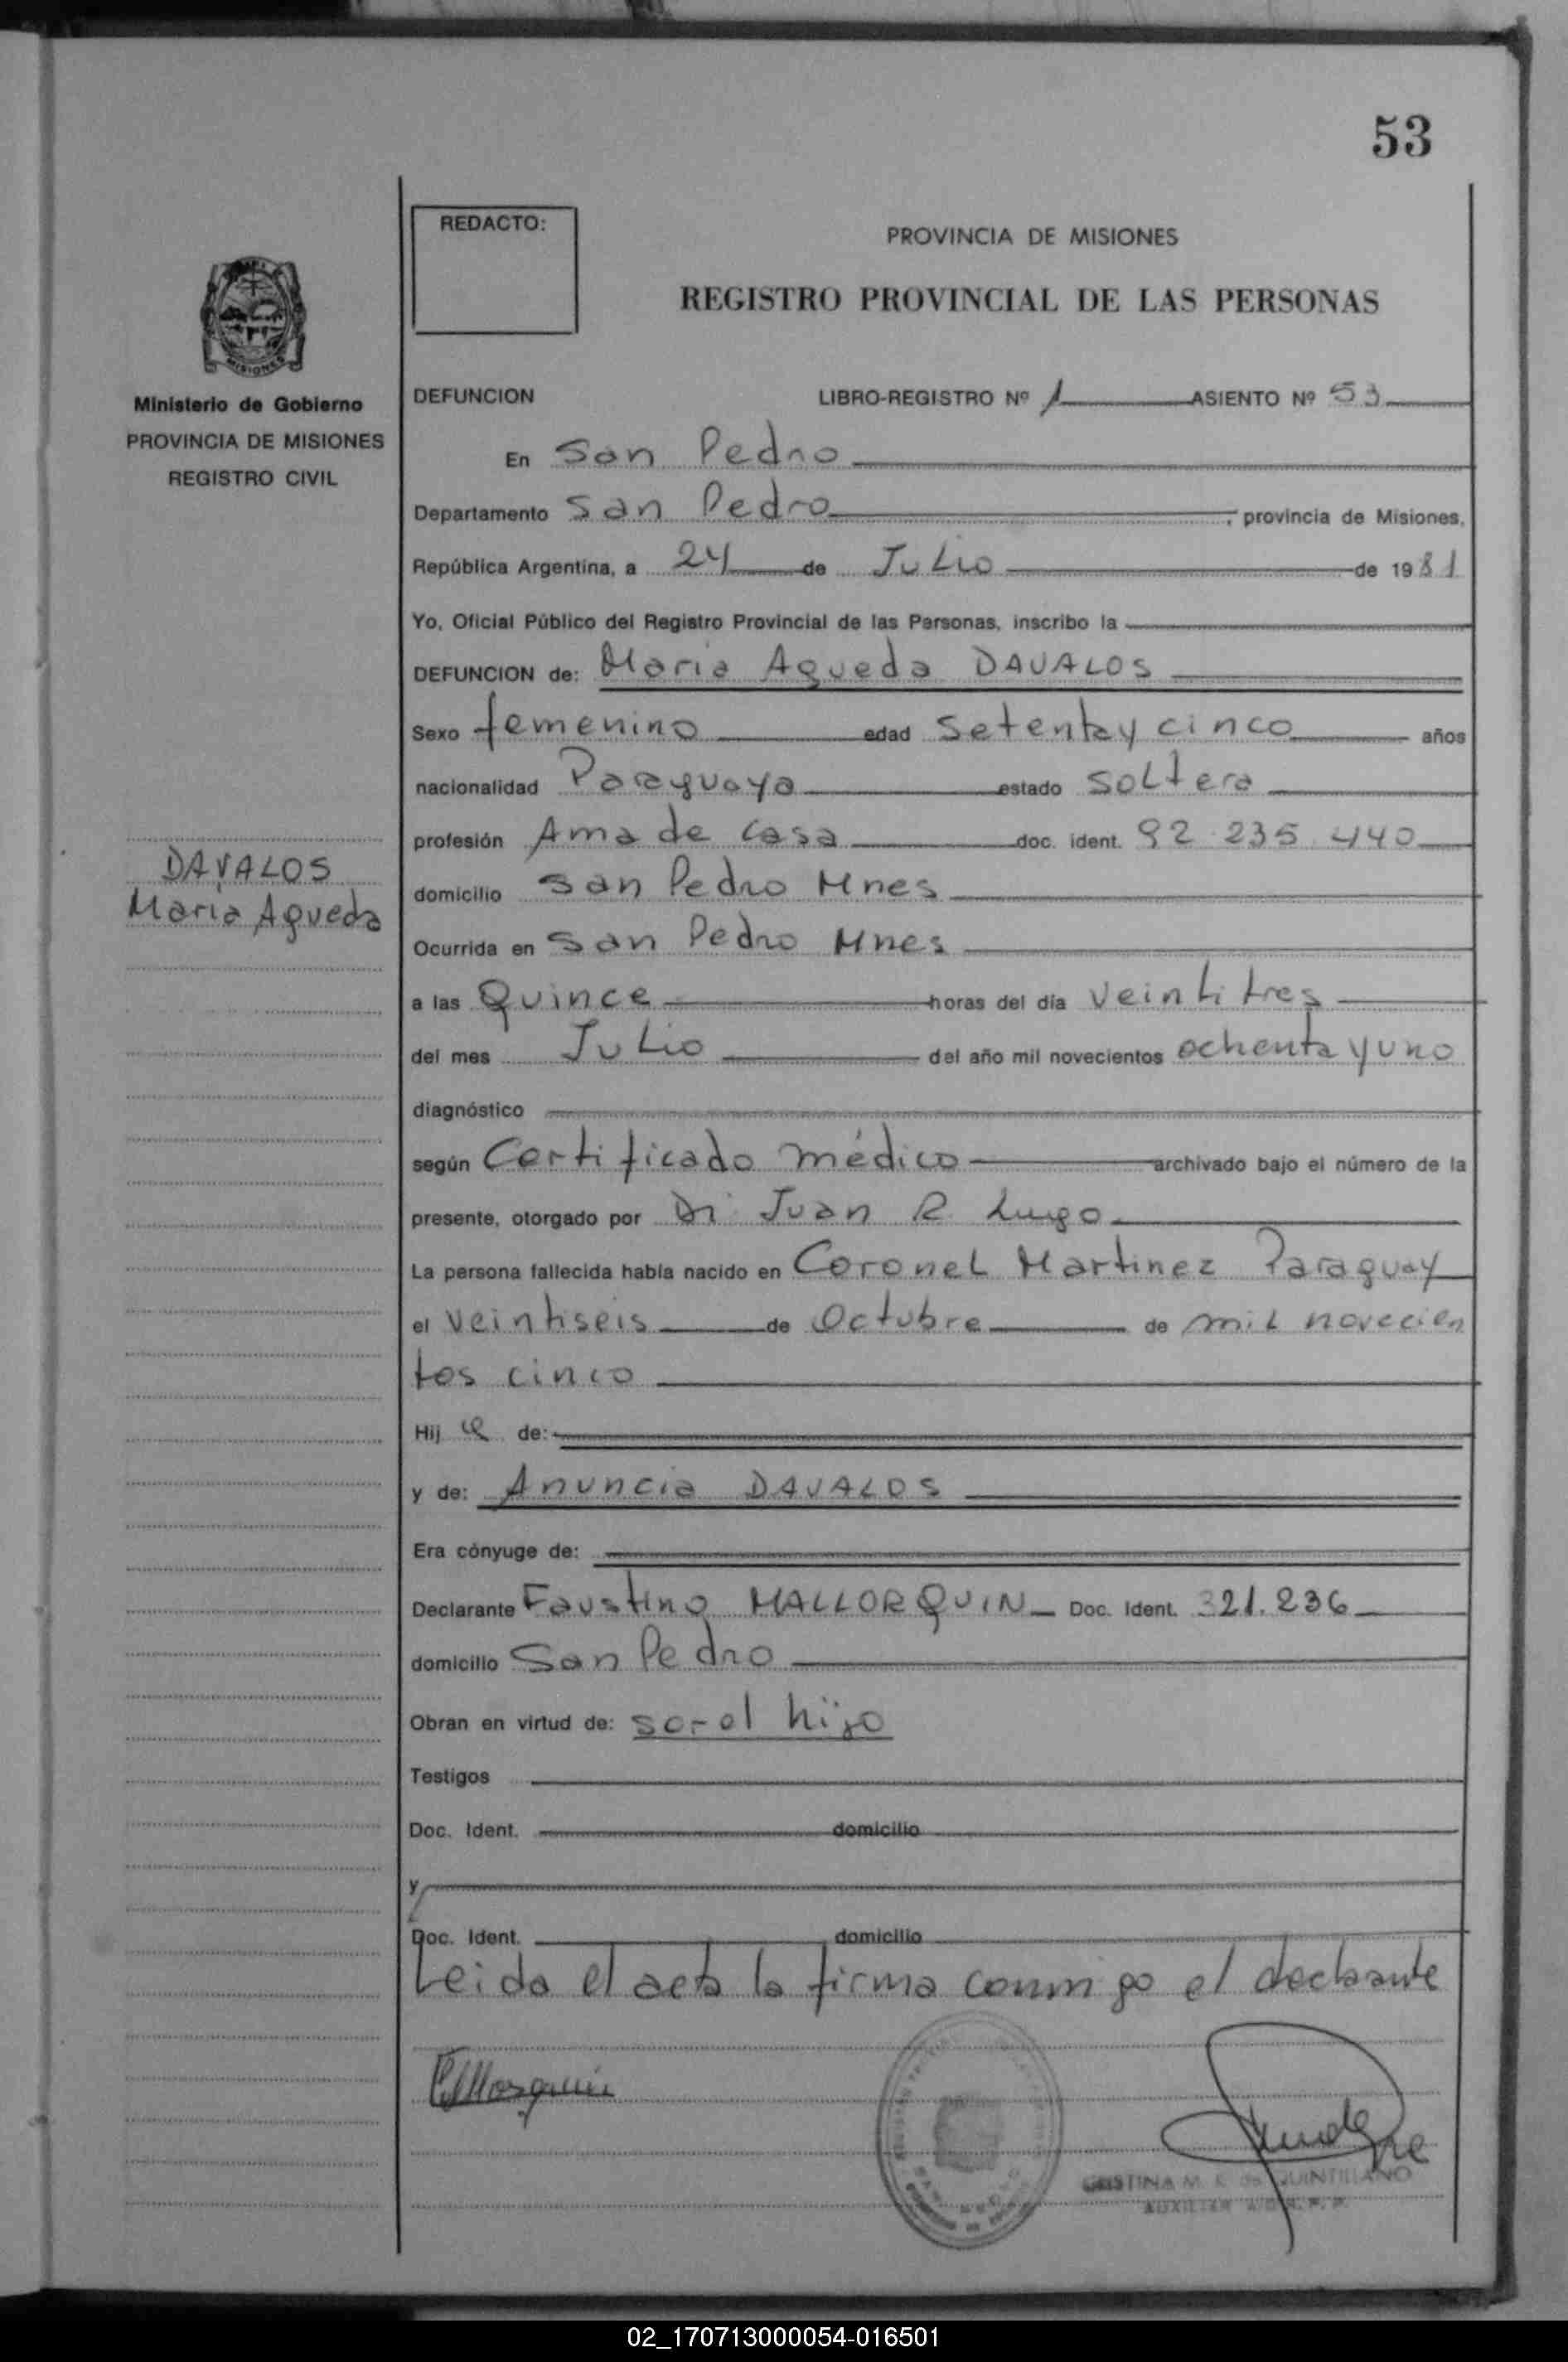 53
REDACTO:
PROVINCIA DE MISIONES
REGISTRO PROVINCIAL DE LAS PERSONAS
MISIONES
Ministerio de Gobierno
PROVINCIA DE MISIONES
REGISTRO CIVIL
DAVALOS
Maria Agueda
DEFUNCION LIBRO-REGISTRO Nº 1 ASIENTO Nº 53
En San Pedro
Departamento San Pedro, provincia de Misiones,
República Argentina, a 24 de Julio de 1981
Yo, Oficial Público del Registro Provincial de las Personas, inscribo la
DEFUNCION de: Maria Agueda DAVALOS
Sexo femenino edad Setenta y cinco años
nacionalidad Paraguaya estado soltera
profesión Ama de casa doc. ident. 92.235.440
domicilio San Pedro Mnes
Ocurrida en San Pedro Mnes
a las Quince horas del día veintitres
del mes Julio del año mil novecientos ochenta y uno
diagnóstico
según Certificado médico archivado bajo el número de la
presente, otorgado por Dr Juan R. Lugo
La persona fallecida había nacido en Coronel Martinez Paraguay
el veintiseis de Octubre de mil novecien
tos cinco
Hij a de:
y de: Anuncia DAVALOS
Era cónyuge de:
Declarante Faustino MALLORQUIN Doc. Ident. 321.236
domicilio San Pedro
Obran en virtud de: ser el hijo
Testigos
Doc. Ident. domicilio
y
Doc. Ident. domicilio
Leida el acta la firma conmigo el declarante
CRISTINA M. K. de QUINTILLANO
AUXILIAR
02_170713000054-016501